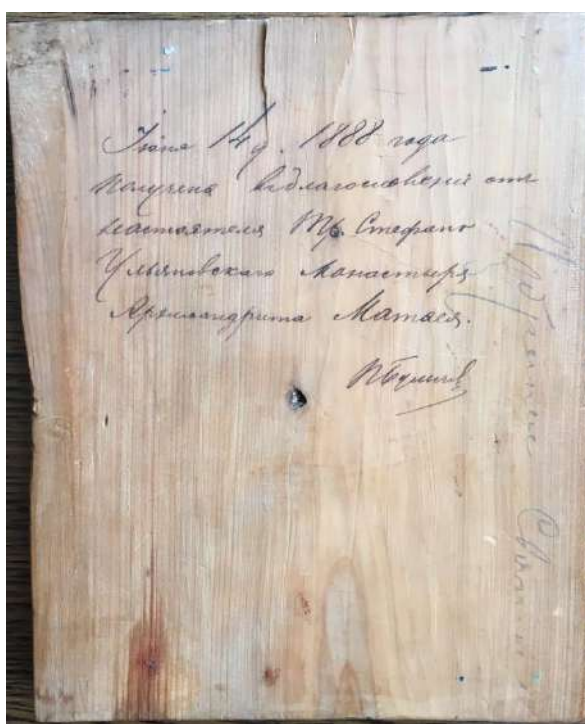 Июня 14 д. 1888 года
получена в благословение от
настоятеля Тр. Стефано
Ульяновского монастыря
Архимандрита Матвея.